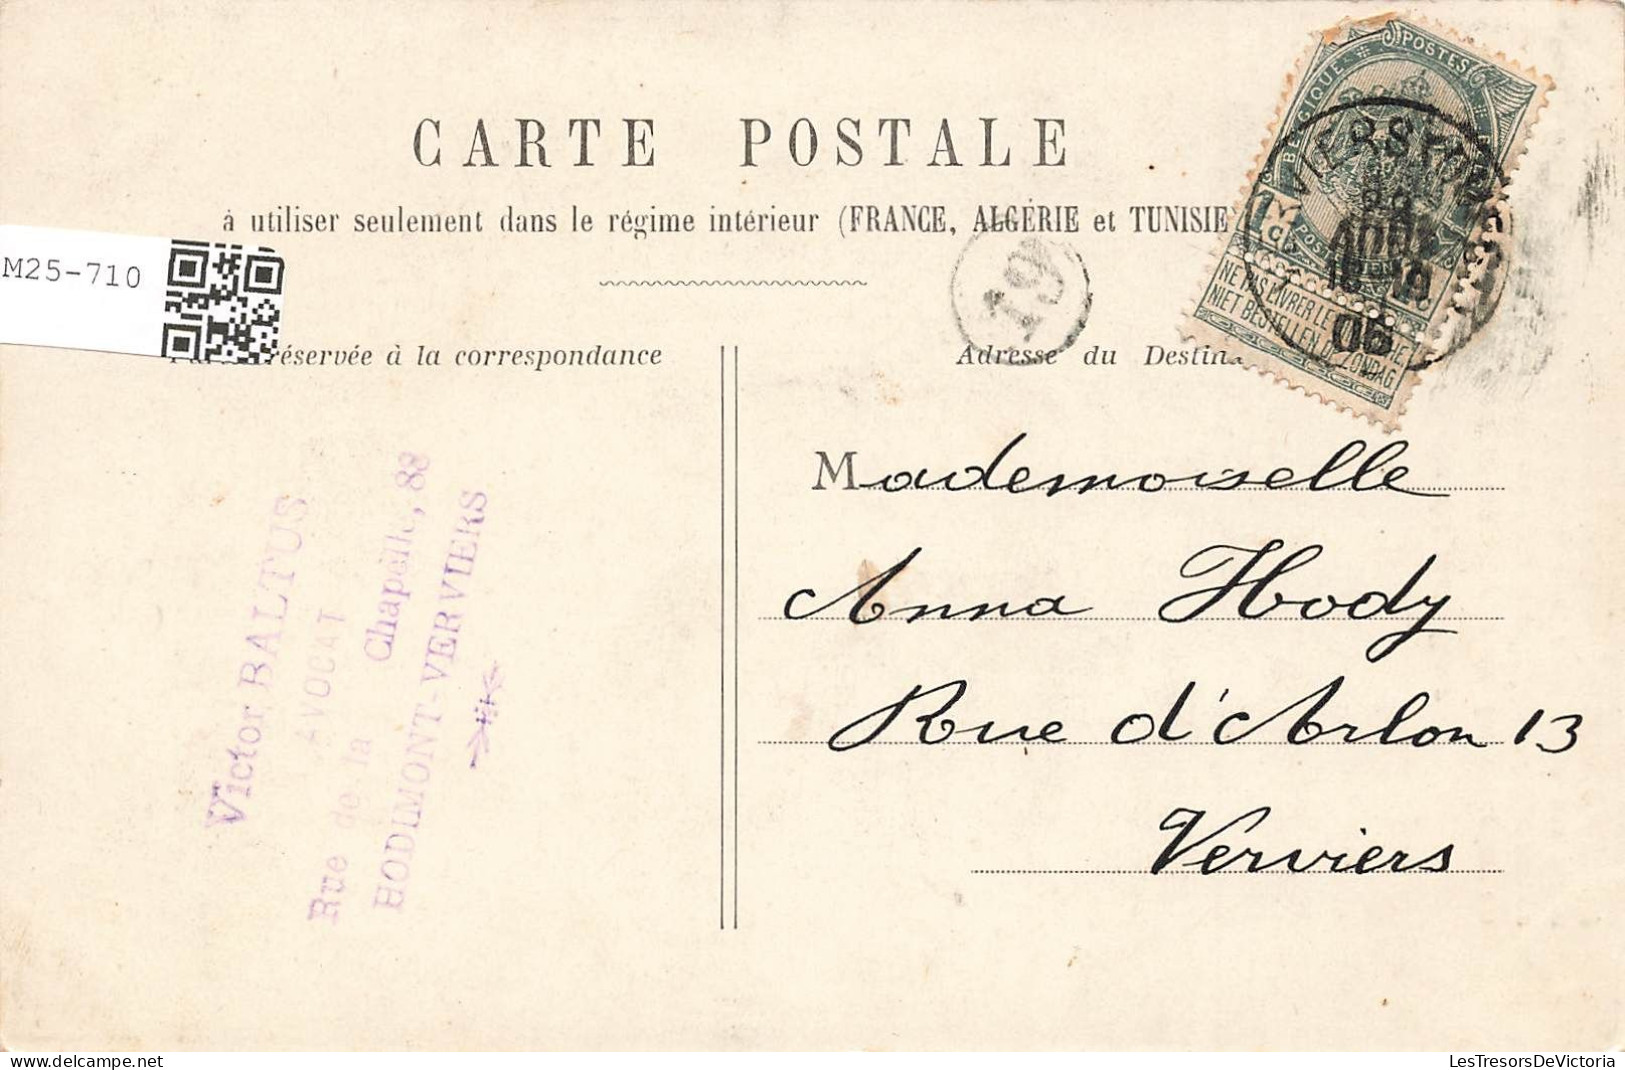 CARTE POSTALE
à utiliser seulement dans le régime intérieur (FRANCE, ALGÉRIE et TUNISIE
M25-710
réservée à la correspondance
Adresse du Destina
19
BELGIQUE POSTES
NE PAS LIVRER LE
NIET BESTELLEN ZONDAG
AOUT
06
Mademoiselle
Anna Hody
Rue d'Arlon 13
Verviers
Victor BALTUS
AVOCAT
Rue de la Chapelle, 88
HODIMONT-VERVIERS
LesTresorsDeVictoria
www.delcampe.net